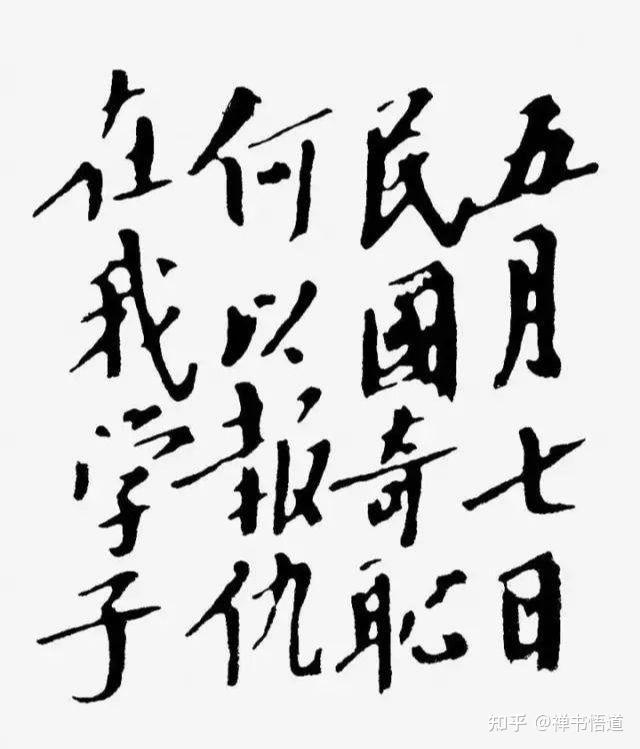 五月七日
民國奇恥
何以報仇
在我学子
知乎 @禅书悟道